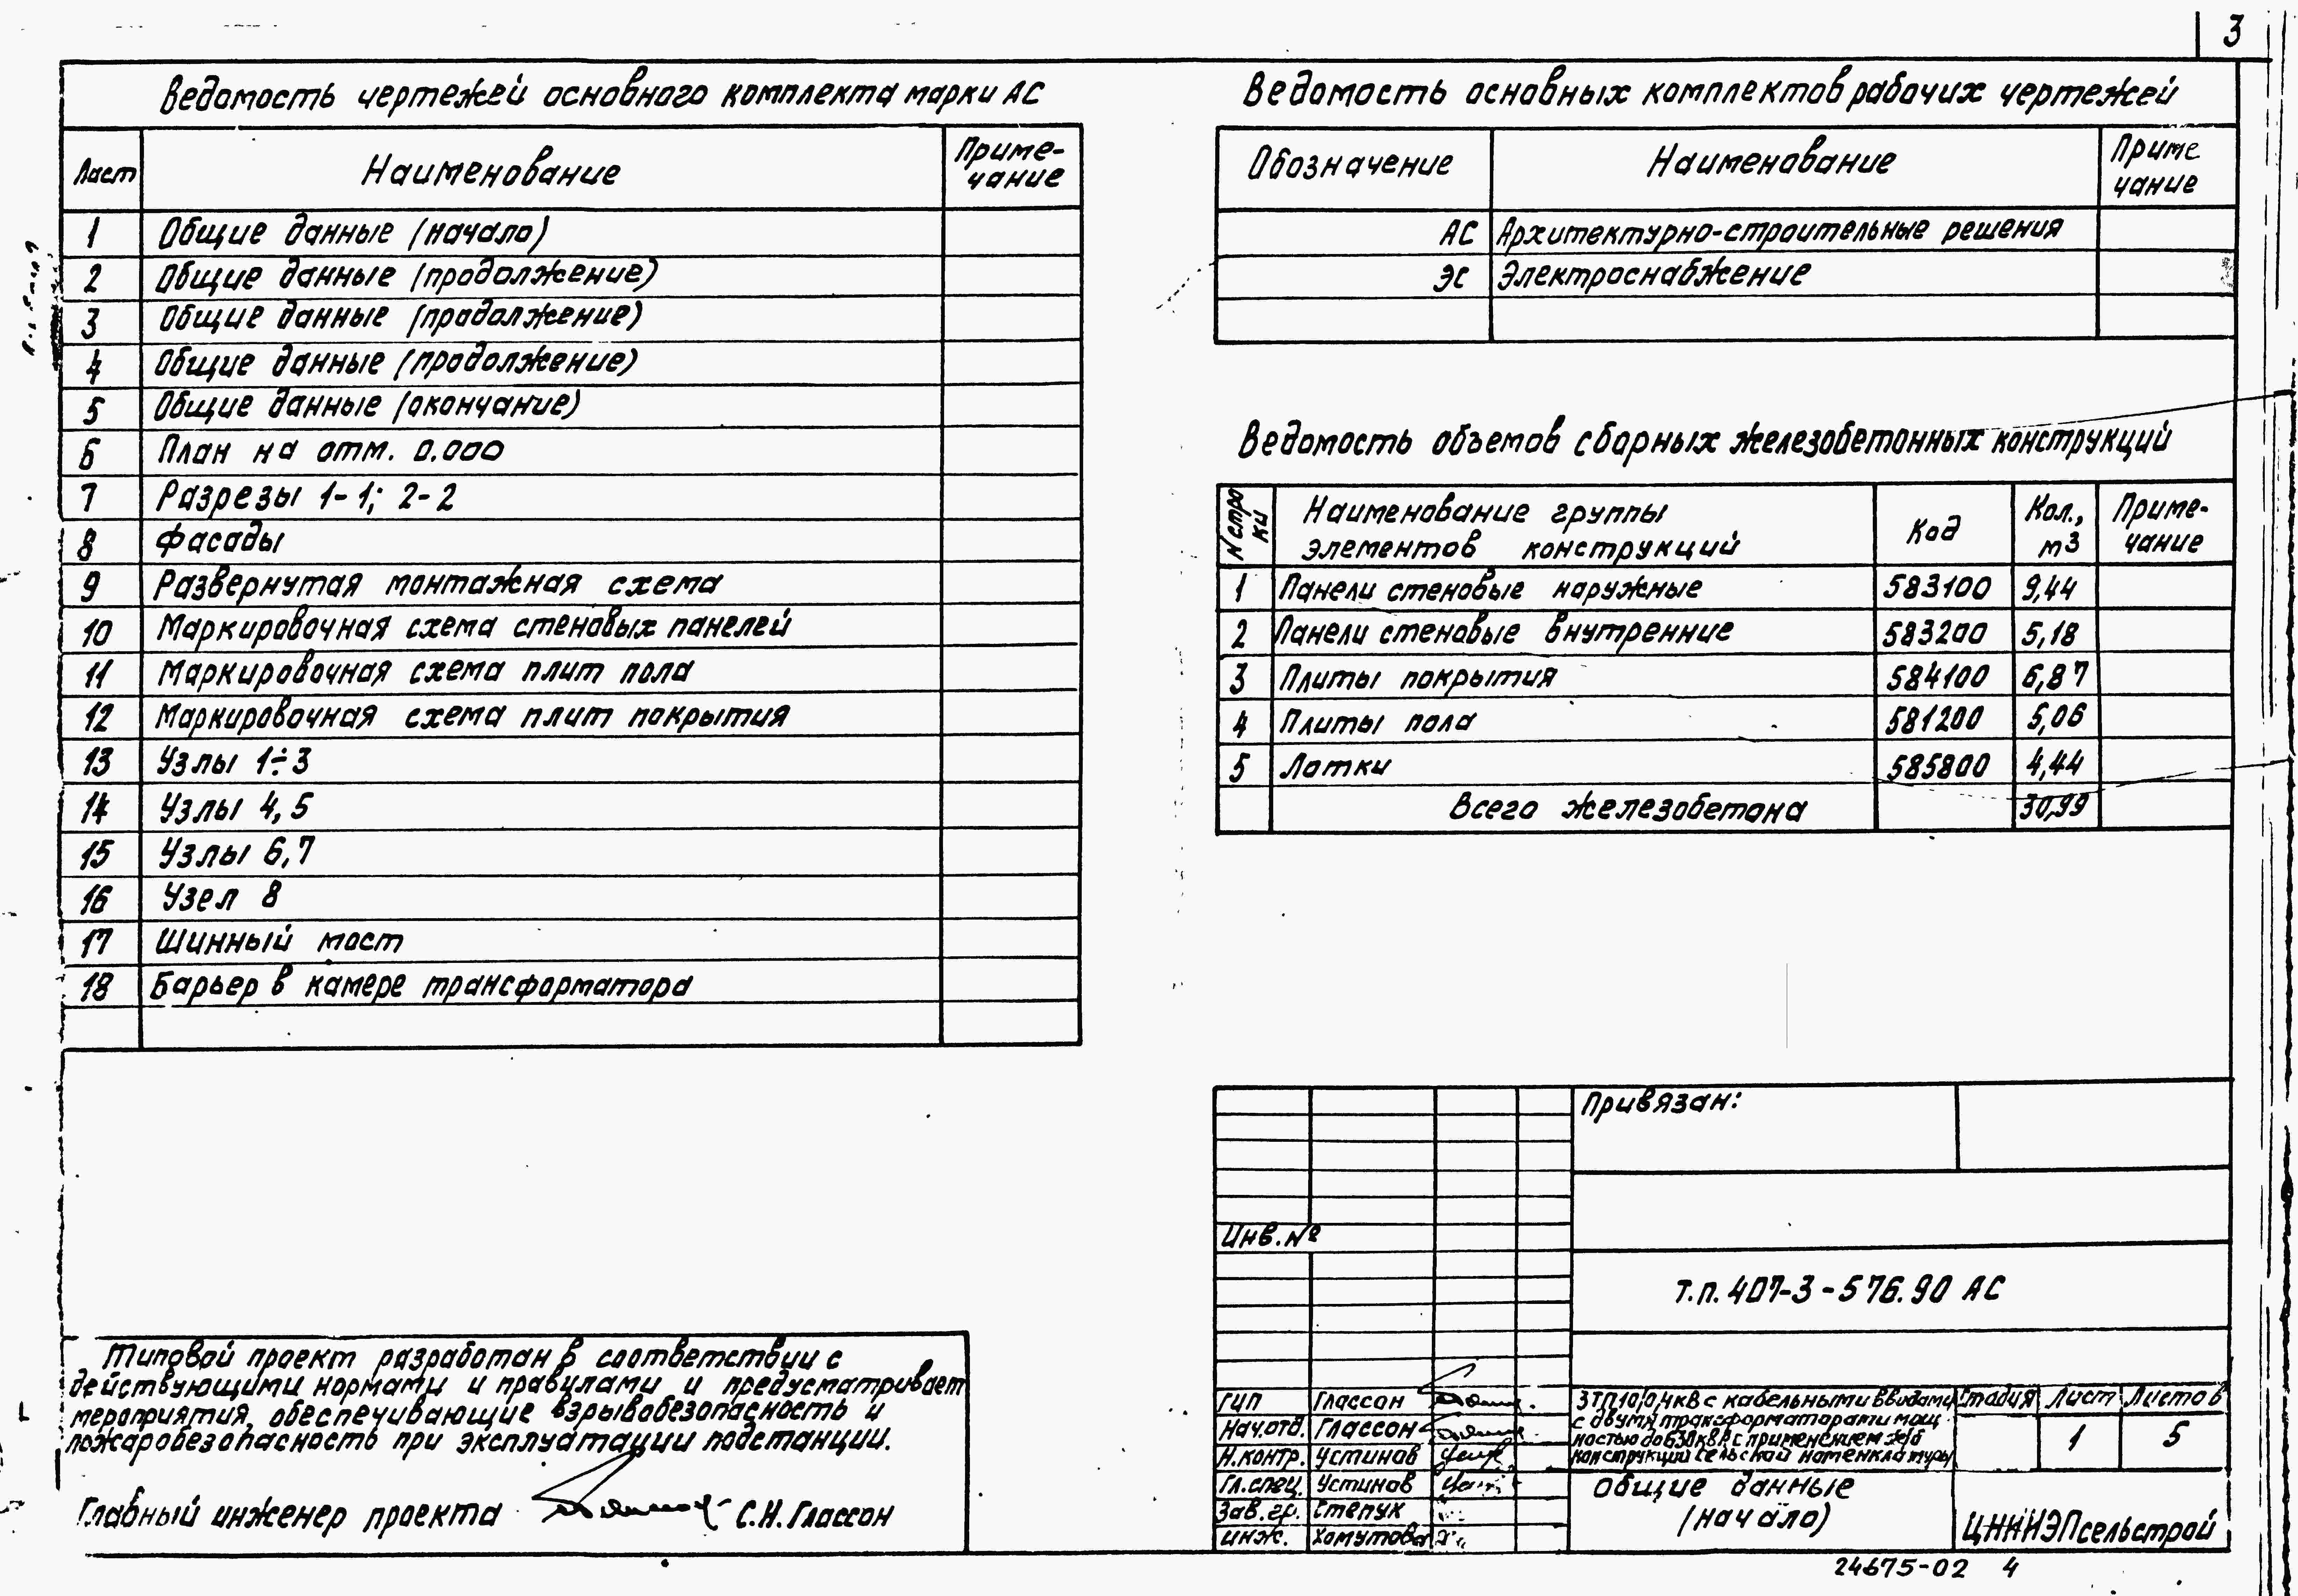 3
Ведомость чертежей основного комплекта марки АС
Лист Наименование Приме-
чание
1 Общие данные (начало)
2 Общие данные (продолжение)
3 Общие данные (продолжение)
4 Общие данные (продолжение)
5 Общие данные (окончание)
6 План на отм. 0.000
7 Разрезы 1-1; 2-2
8 Фасады
9 Развернутая монтажная схема
10 Маркировочная схема стеновых панелей
11 Маркировочная схема плит пола
12 Маркировочная схема плит покрытия
13 Узлы 1÷3
14 Узлы 4,5
15 Узлы 6,7
16 Узел 8
17 Шинный мост
18 Барьер в камере трансформатора
Ведомость основных комплектов рабочих чертежей
Обозначение Наименование Приме
чание
АС Архитектурно-строительные решения
ЭС Электроснабжение
Ведомость объемов сборных железобетонных конструкций
N стро
ки
Наименование группы
элементов конструкций
Код
Кол.,
м3
Приме-
чание
1 Панели стеновые наружные 583100 9,44
2 Панели стеновые внутренние 583200 5,18
3 Плиты покрытия 584100 6,87
4 Плиты пола 581200 5,06
5 Лотки 585800 4,44
Всего железобетона 30,99
Типовой проект разработан в соответствии с
действующими нормами и правилами и предусматривает
мероприятия, обеспечивающие взрывобезопасность и
пожаробезопасность при эксплуатации подстанции.
Главный инженер проекта С.Н. Глассон
Привязан:
Инв. №
т.п. 407-3-576.90 АС
ГИП Глассон
Нач.отд. Глассон
Н.контр. Устинов
Гл.спец. Устинов
Зав.гр. Степук
инж. Хомутова
ЗТП10/0,4кВ с кабельными вводами
с двумя трансформаторами мощ-
ностью до 630кВА с применением ж/б
конструкций сельской номенклатуры
Стадия Лист Листов
1 5
Общие данные
(начало)
ЦНИИЭПсельстрой
24675-02 4